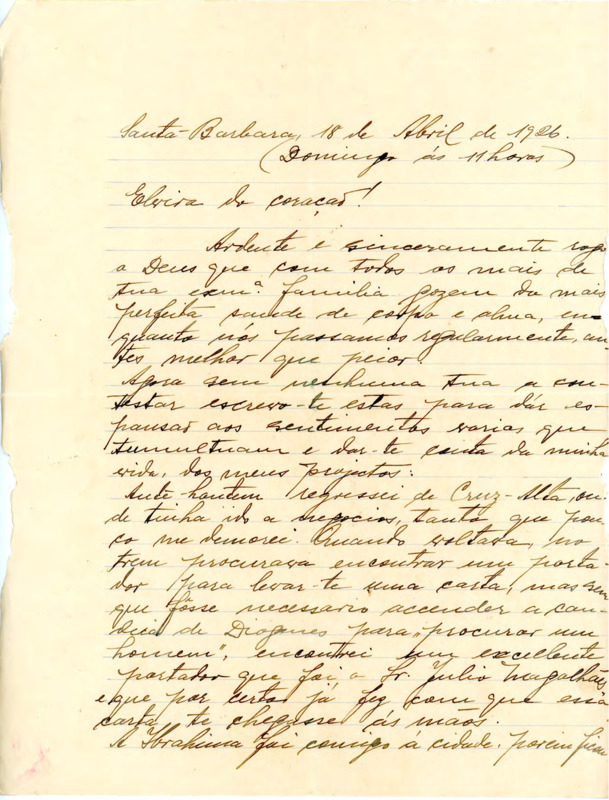 Santa-Barbara, 18 de Abril de 1926.
(Domingo ás 11 horas)
Elvira do coração!
Ardente e sinceramente rogo
a Deus que com todos os mais de
tua exmª. familia gozem da mais
perfeita saude de corpo e alma, en-
quanto nós passamos regularmente, an-
tes melhor que peior.
Agora sem nenhuma tua a con-
testar escrevo-te estas para dár ex-
pansaõ aos sentimentos varios que
tumultuam e dar-te conta da minha
vida, dos meus projectos:
Ante-hontem regressei de Cruz-Alta, on-
de tinha ido a negocios, tanto que pou-
co me demorei. Quando voltava, no
trem procurava encontrar um porta-
dor para levar-te uma carta, mas sem
que fôsse necessario accender a can-
deia de Diogenes para "procurar um
homem", encontrei um excellente
portador que foi o Sr. Julio Magalhães
e que por certo já fez com que essa
carta te chegasse ás mãos.
A Ibrahima foi comigo á cidade, porém ficou